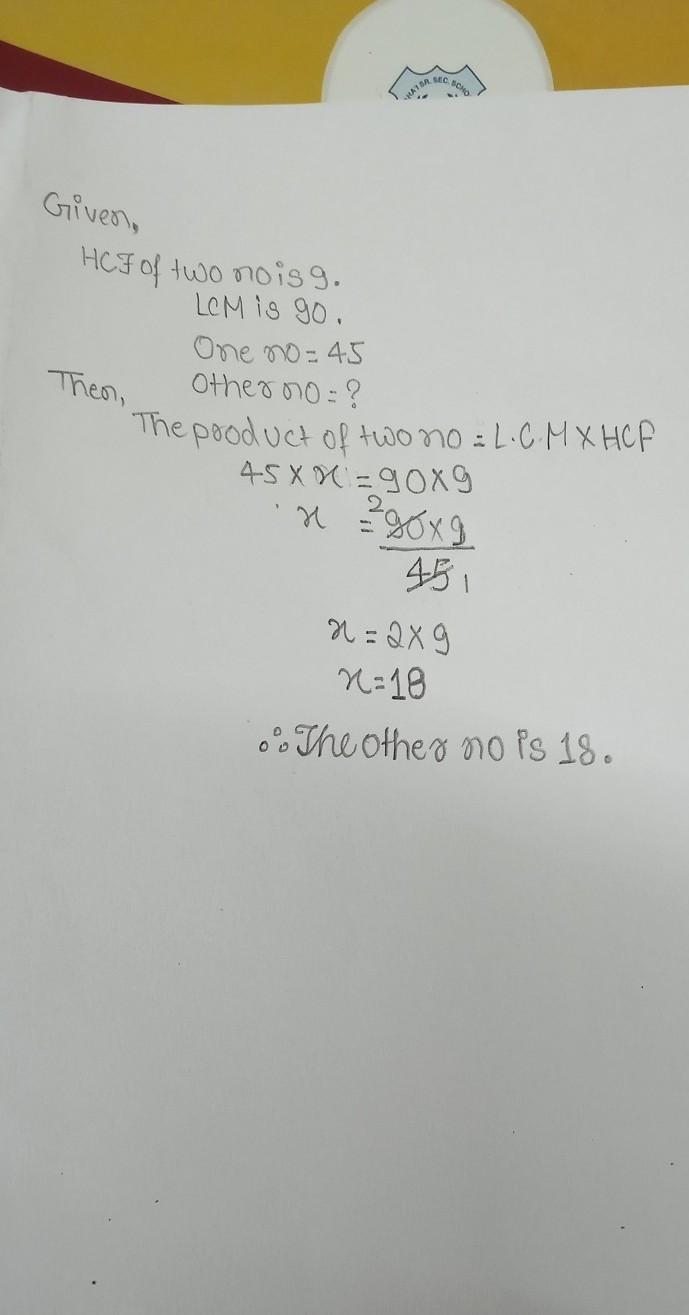 HAT SR. SEC. SCHO
Given,
HCF of two no is 9.
LCM is 90.
One no = 45
Then, Other no = ?
The product of two no = L.C.M X HCF
45 X x = 90 X 9
x = 2 90 X 9
45 1
x = 2 X 9
x = 18
∴ The other no is 18.